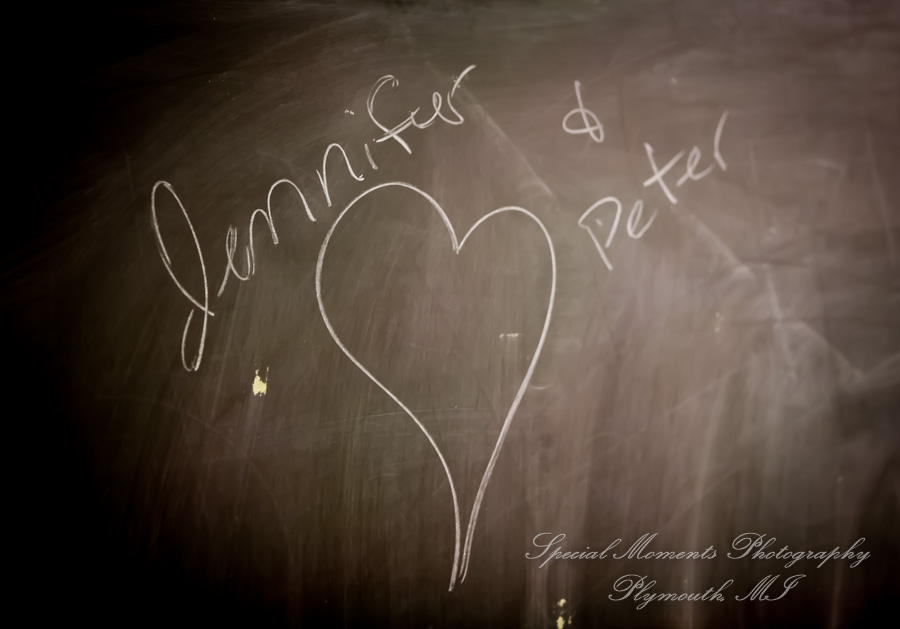 Jennifer
&
Peter
Special Moments Photography
Plymouth, MI